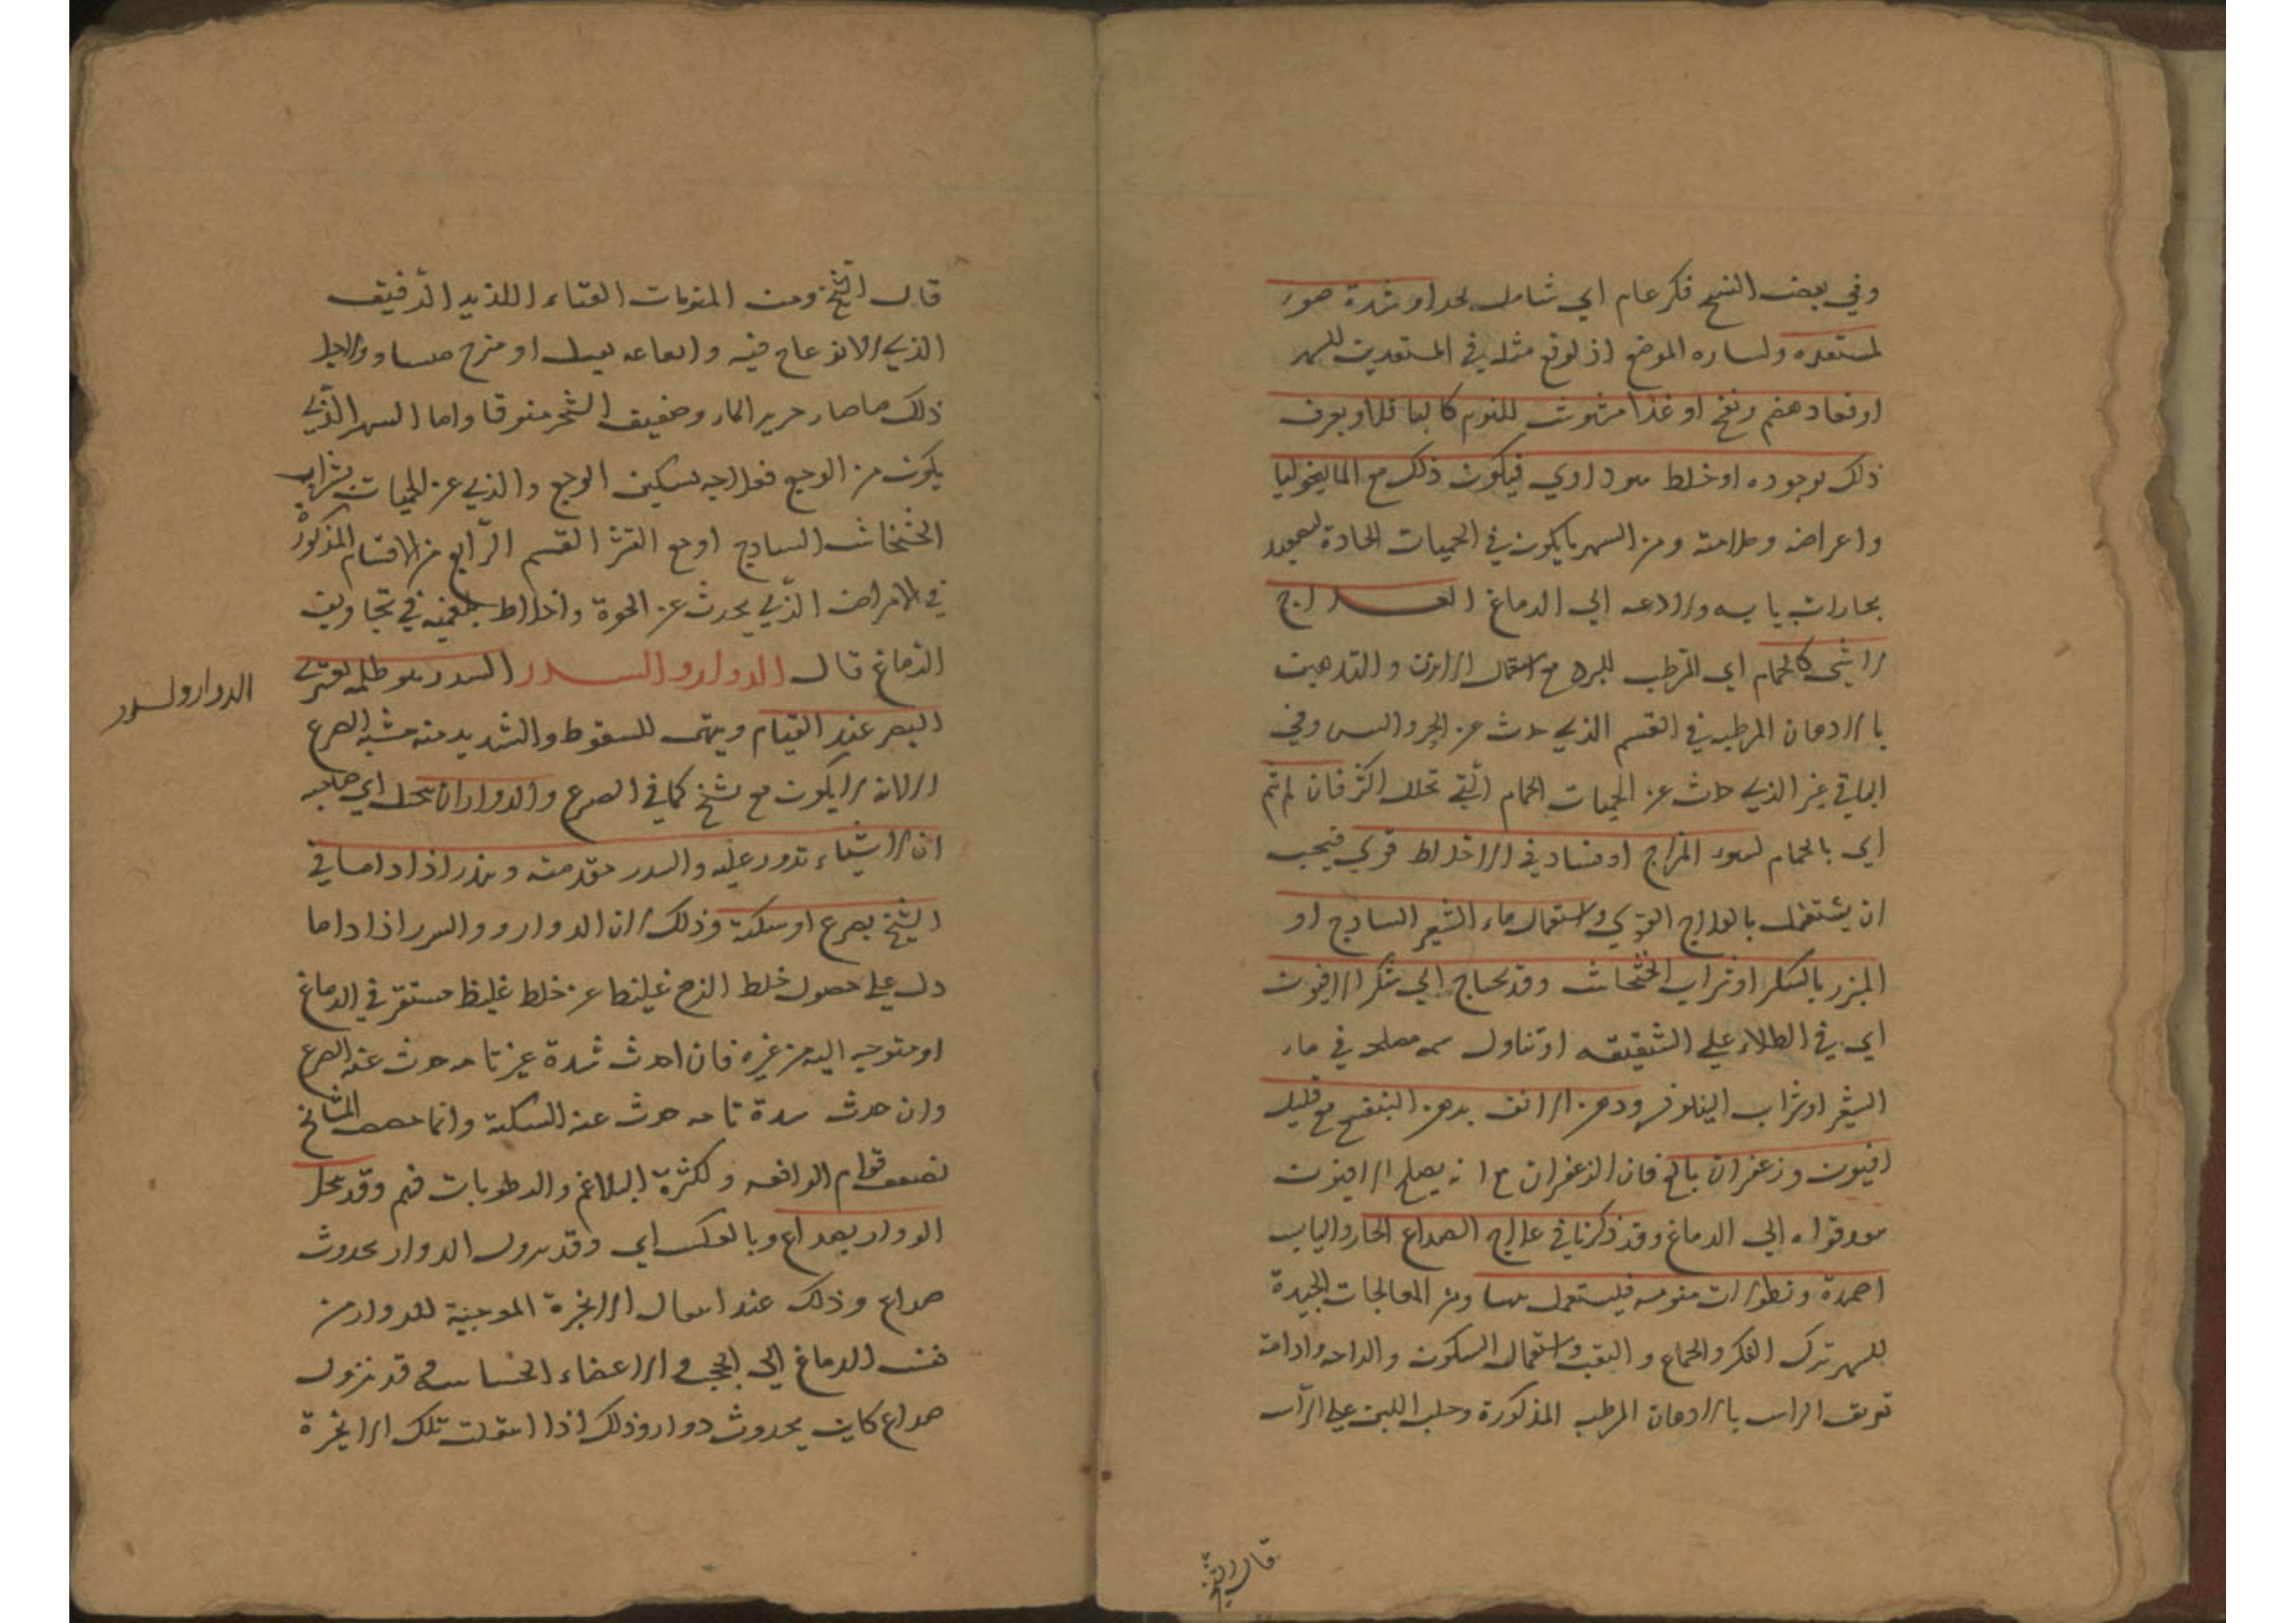 وفي بعض النسخ فكر عام اي شامل لحد او شدة ضوء
لمستعده ولساره الموضع اذ لوقع مثله في المستعدين للسهر
او فساد هضم ونفخ او غذا مشوش للنوم كالباقلا ويعرف
ذلك بوجوده او خلط سوداوي فيكون ذلك مع الماليخوليا
واعراضه وعلامته ومن السهر ما يكون في الحميات الحادة لصعود
بخارات يابسه ولاذعه الي الدماغ العلاج
لا شي كالحمام اي المرطب للبدن مع استعمال الابزن والتدهين
بالادهان المرطبه في القسم الذي حدث عن الحر واليبس وفي
الباقي غير الذي حدث عن الحميات الحمام التي تحلل اكثر فان لم ينم
اي بالحمام لسوء المزاج او فساد في الاخلاط قوي فيجب
ان يشتغل بالعلاج القوي واستعمال ماء الشعير الساذج او
المبزر بالسكر او شراب الخشخاش وقد يحتاج الي شكر الافيون
اي في الطلاء علي الشقيقه او تناول مصلحه في ماء
الشعير او شراب النيلوفر ودهن الانف بدهن البنفسج مع قليل
افيون وزعفران بالخ فان الزعفران مع انه يصلح الافيون
قواه الي الدماغ وقد ذكرنا في علاج الصداع الحار واليابس
اضمدة ونطولات منومه فليستعمل منها ومن المعالجات الجيدة
للسهر ترك الفكر والجماع والتعب واستعمال السكون والراحه وادامة
تعريق الراس بالادهان المرطبه المذكورة وحلب اللبن علي الراس
قال الشيخ
قال الشيخ ومن المنومات الغناء اللذيذ الرقيق
الذي لا انزعاج فيه وايقاعه ثقيل او هزج مساو ولاجل
ذلك ما صار خرير الماء وحفيف الشجر منوما واما السهر الذي
يكون من الوجع فعلاجه تسكين الوجع والذي عن الحميات بشراب
الخشخاش الساذج او مع القشر القسم الرابع من الاقسام المذكور
في الامراض الذي يحدث عن اخلاط بلغميه في تجاويف
الدماغ قال الدوار والسدر السدر هو ظلمه تعتري
البصر عند القيام ويتهيا للسقوط والشديد منه مشبه الصرع
الا انه لا يكون مع تشنج كما في الصرع والدوار ان يتخيل اي صاحبه
ان الاشياء تدور عليه والسدر مقدمته وينذر اذا داما في
الشيخ بصرع او سكتة وذلك لان الدوار و والسدر اذا داما
دل علي حصول خلط الزج غليظا عن خلط غليظ مستقر في الدماغ
او متوجه اليه من غيره فان احدث شدة غير تامه حدث عنه الصرع
وان حدث سدة تامه حدث عنه السكتة وانما خص المشائخ
لضعف قوام الدافعه ولكثرة البلاغم والرطوبات فيهم وقد يتحلل
الدوار بصداع وبالعكس اي وقد يزول الدوار بحدوث
صداع وذلك عند انتقال الابخرة الموجبة للدوار من
نفس الدماغ الي الحجب والاعضاء الحساسه وقد يزول
صداع كاين بحدوث دوار وذلك اذا انتقلت تلك الابخرة
الدوار ولسدر